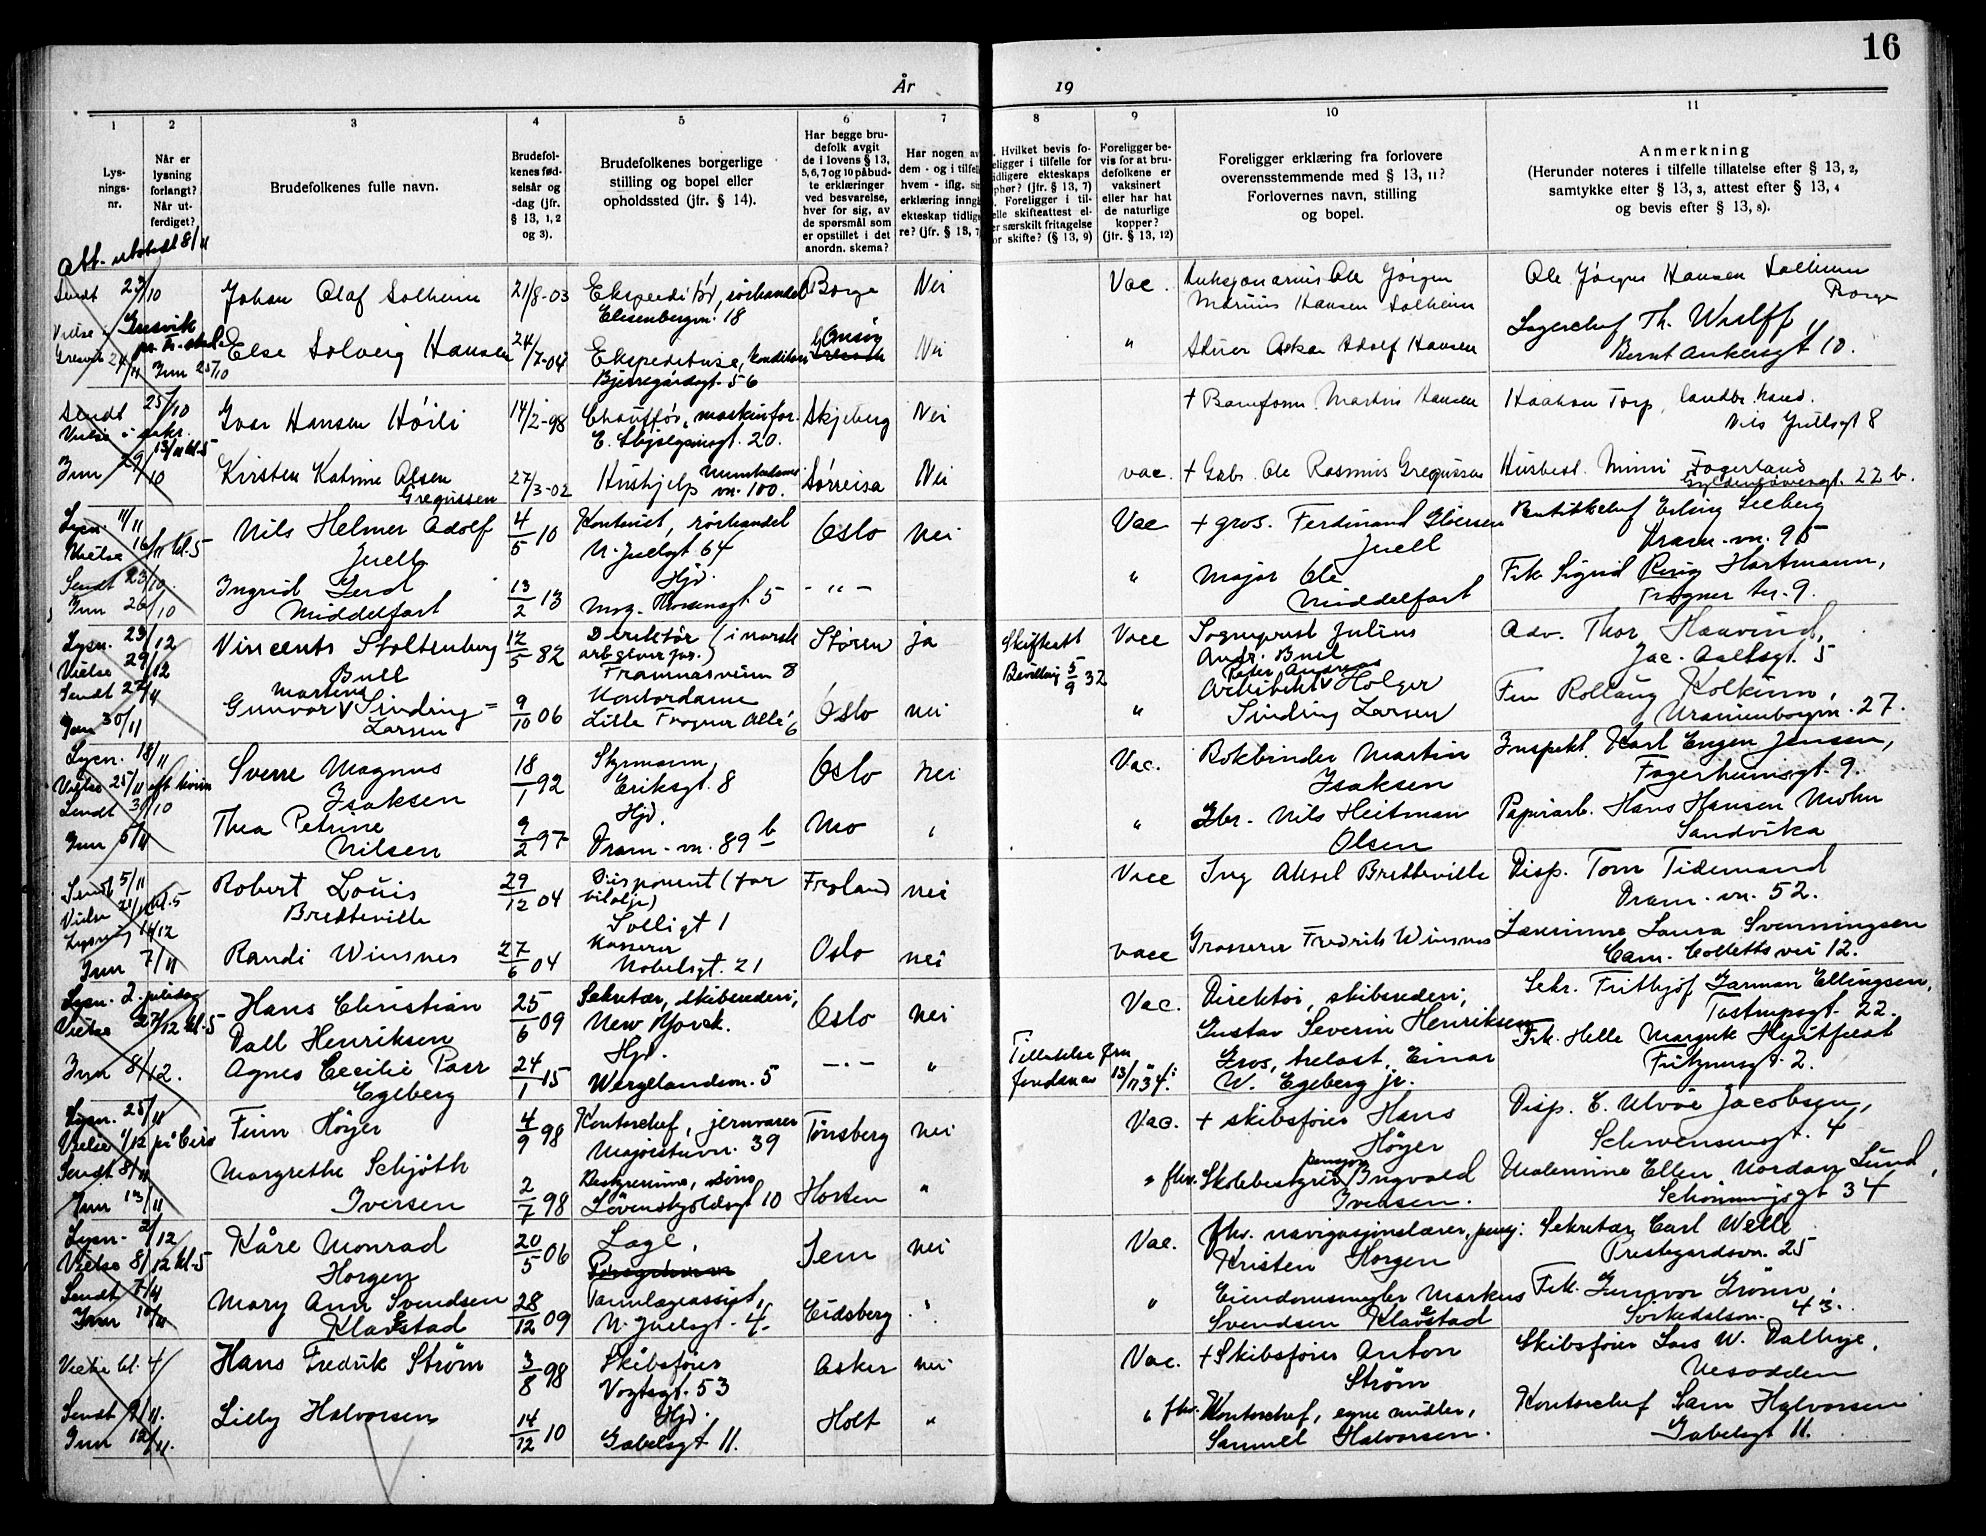 16
År 19
1 2 3 4 5 6 7 8 9 10 11
Lys-
nings-
nr.
Når er
lysning
forlangt?
Når ut-
ferdiget?
Brudefolkenes fulle navn.
Brudefol-
kenes fød-
selsår og
-dag (jfr.
§ 13, 1, 2
og 3).
Brudefolkenes borgerlige
stilling og bopel eller
opholdssted (jfr. § 14).
Har begge bru-
defolk avgit
de i lovens § 13,
5, 6, 7 og 10 påbud-
te erklæringer
ved besvarelse,
hver for sig, av
de spørsmål som
er opstillet i det
anordn. skema?
Har nogen av
dem - og i tilfelle
hvem - iflg. sin
erklæring inngått
ekteskap tidlige-
re? (jfr. § 13, 7
Hvilket bevis fo-
religger i tilfelle for
tidligere ekteskaps
ophør? (jfr. § 13, 7)
Foreligger i til-
felle skifteattest el-
er særskilt fritagelse
or skifte? (§ 13, 9)
Foreligger be-
vis for at bru-
defolkene er
vaksinert
eller har hat
de naturlige
kopper?
(jfr. § 13, 12)
Foreligger erklæring fra forlovere
overensstemmende med § 13, 11?
Forlovernes navn, stilling
og bopel.
Anmerkning
(Herunder noteres i tilfelle tillatelse efter § 13, 2,
samtykke efter § 13, 3, attest efter § 13, 4
og bevis efter § 13, 8).
Att. utstedt 8/11
Sendt 23/10 Johan Olaf Solheim 21/8-03 Ekspeditør, rørhandel Borge Nei Vac. Ole Jørgen Ole Jørgen Hansen Solheim
Elisenbergvn. 18 Marius Hansen Solheim Borge
Gresvik Else Solveig Hansen 24/7-04 Ekspeditrise, konditori Onsøy Nei " Stuer Oskar Adolf Hansen Lagerchef Th. Wulff,
Inn 25/10 Bjerregårdsgt. 56 Bernt Ankersgt 10.
Sendt 25/10 Ivar Hansen Høili 14/2-98 Chauffør, maskinfor. Skjeberg Nei + Martin Hansen Haakon Torp, landbr. kand.
13/11 kl. 5 20. Nils Juelsgt 8
Inn 29/10 Kirsten Katrine Olsen 27/3-02 Hushjelp Sørreisa Nei vac. + Ole Rasmus Gregussen Husbest. Mimi Fagerland
Gregussen vn. 100. 22 b.
Lysn. 11/11 Nils Helmer Adolf 4/5 10 Kontorist, rørhandel Oslo nei Vac + gros. Ferdinand Juell Butikkchef Erling Seeberg
Vielse 16/11 kl. 5 Juell N. Juelsgt 64 Dram. vn. 95
Sendt 23/10. Ingrid Gerd 13/2 13 Hjd. - " - " Major Ole Frk Sigrid Hartmann,
Inn 26/10 Middelfart 5 Middelfart Frogner ter. 9.
Lysn. 23/12 Vincents Stoltenberg 12/5 82 Direktør (i norsk Støren ja Skifteatt Vacc Sogneprest Julius Adv. Thor Haavind,
Vielse 29/12 Bull arbgiverfor.) Bevilling 5/9 32 Andr. Bull Jac. Aallsgt. 5
Sendt 27/11 Gunvor Martina Sinding- 9/10 06 Kontordame Oslo nei " Arkitekt Peter Andreas Holger
Inn 30/11 Larsen Lille Frogner Allé 6 Sinding Larsen Uranienborgvn. 27.
Lysn. 18/11 Sverre Magnus 18/1 92 Styrmann, Oslo nei Vac. Bokbinder Martin Inspekt. Karl Engen Jensen,
Vielse 25/11 Isaksen Eriksgt. 8 Isaksen Fagerheimsgt. 9.
Sendt 31/10 Thea Petrine 9/2 97 Hjd. Mo " " Gbr. Nils Heitman Papirarb. Hans Hansen Mohn
Inn 5/11 Nilsen Dram. vn. 89 b Olsen Sandvika
Sendt 5/11 Robert Louis 29/12 04 Disponent (for Froland nei Vacc Ing Aksel Bretteville Disp. Tom Tidemand
Vielse kl. 5 Bredteville bilolje) Dram. vn. 52.
Lysning Solligt 1
Randi Winsnes 27/6 04 Kasserer Oslo nei vacc Grosserer Fredrik Winsnes Laura Svenningsen
Inn 7/11 Nobelsgt. 21 Cam. Colletts vei 12.
Lysn. 2. juledag Hans Christian 25/6 09 Sekretær, skibsrederi, Oslo nei Vac. Direktør, skibsrederi, Sekr. Frithjof Garman Ellingsen,
Vielse 27/12 kl. 5 Dall Henriksen New York. Gustav Severin Henriksen Tostrupsgt. 22.
Inn 8/12. Agnes Cecilie Parr 24/1 15 Hjd. - " - " Tillatelse fra Gros, trelast, Einar Frk. Helle Margrete
Egeberg Wergelandsvn. 5 13/11 34. W. Egeberg jr. 2.
Lysn. 25/11 Finn Høyer 4/9 98 Kontorchef, jernvarer Tønsberg nei Vac. + skibsfører Hans Disp. C. Ulvøe Jacobsen,
Vielse 1/12 Majorstuvn. 39 Høyer Schwensensgt. 4
Sendt 8/11 Margrethe Schjøth 2/7 98 Bestyrerinne, Horten " " fhv. Skolebestyrer pensjon. Ingvald Malerinne Ellen Nordan Lund,
Inn 13/11 Iversen Løvenskjoldsgt 10 Iversen. Schønningsgt 34
Lysn. 2/12 Kåre Monrad 20/5 06 Læge, Sem nei Vac. fhv. navigasjonslærer, pensj: Sekretær Carl Welle
Vielse 8/12 kl. 5 Horgen Kristen Horgen Prestegardsvn. 25
Sendt 7/11 Mary Ann Svendsen 28/12 09 Tannlægeassist, Eidsberg " " Eiendomsmegler Markus Frk. Gunvor Grøm,
Inn 10/11 Klavestad N. Juelsgt. 4. Svendsen Klavestad Sørkedalsvn. 43.
Vielse kl. 4 Hans Fredrik Strøm 3/8 98 Skibsfører Asker nei Vac. + Skibsfører Anton Skibsfører Lars W. Dalbye,
Vogtsgt. 53 Strøm Nesodden
Sendt 9/11. Lilly Halvorsen 14/12 10 Hjd. Holt " " fhv. Kontorchef, Kontorchef Sam Halvorsen
Inn 12/11. Gabelsgt 11. Samuel Halvorsen. Gabelsgt 11.